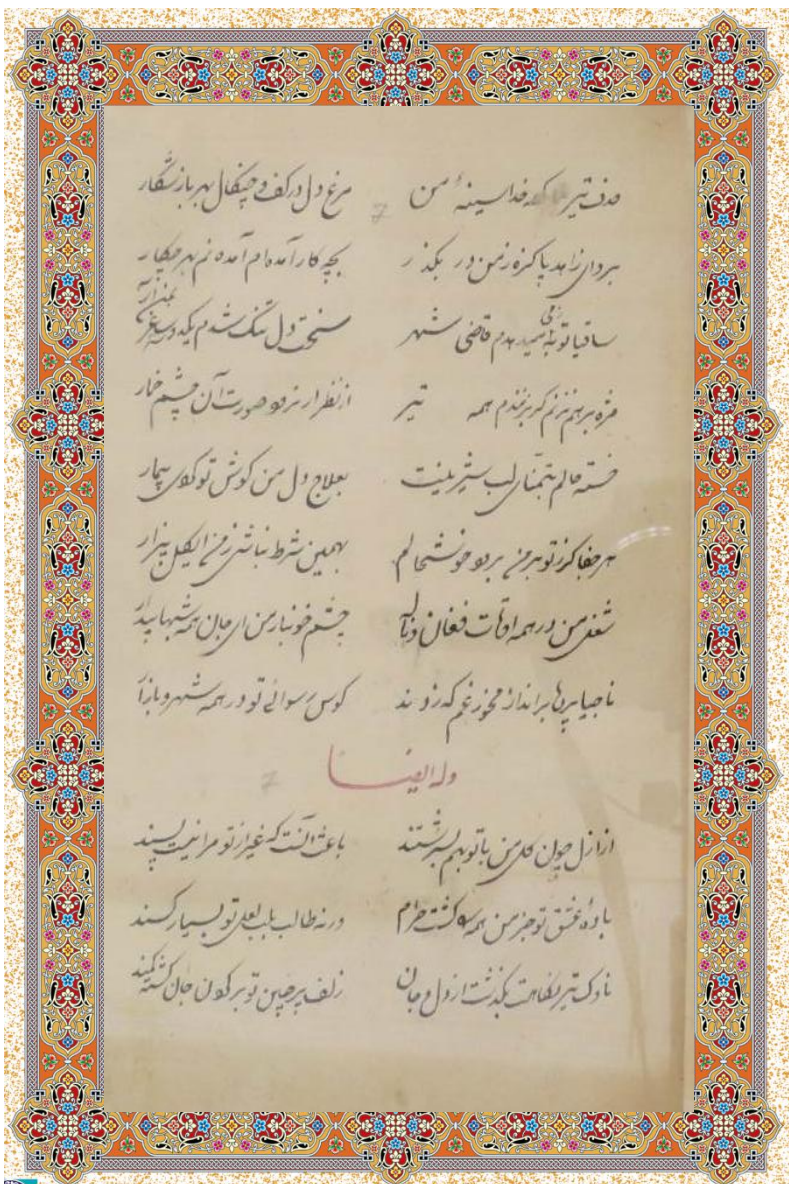 هدف تیر که خدا سینهٔ من مرغ دل در کف و چنگال بهر باز شکار
برو ای زاهد پاکیزه ز من در بگذر بچه کار آمده‌ام آمده‌ام بهر چکار
ساقیا توبه‌ام قاضی شهر سخت دل تنگ شدم یکدوسه ساغر
مژه بر هم نزنم گر بزنندم همه تیر از نظر ار نرود صورت آن چشم خمار
خسته حالم بتمنای لب شیرینت بعلاج دل من کوش توئی بیمار
هر جفا کز تو بر من برود خوشحالم بهمین شرط نباشی ز من ای گل بیزار
شغل من در همه اوقات فغان و ناله چشم خونبار من ای جان همه شبها بیدار
ناجیا پرده برانداز مخور غم که زدند کوس رسوائی تو در همه شهر و بازار
وله ایضا
از ازل چون گل من با تو بهم بسرشتند باعث آنست که غیر از تو مرا نیست پسند
بادهٔ عشق تو جز من همه کس گشت حرام ورنه طالب بلب لعل تو بسیار کسند
ناوک تیر نگاهت بگذشت از دل و جان زلف پرچین تو بر گردن جان گشته کمند